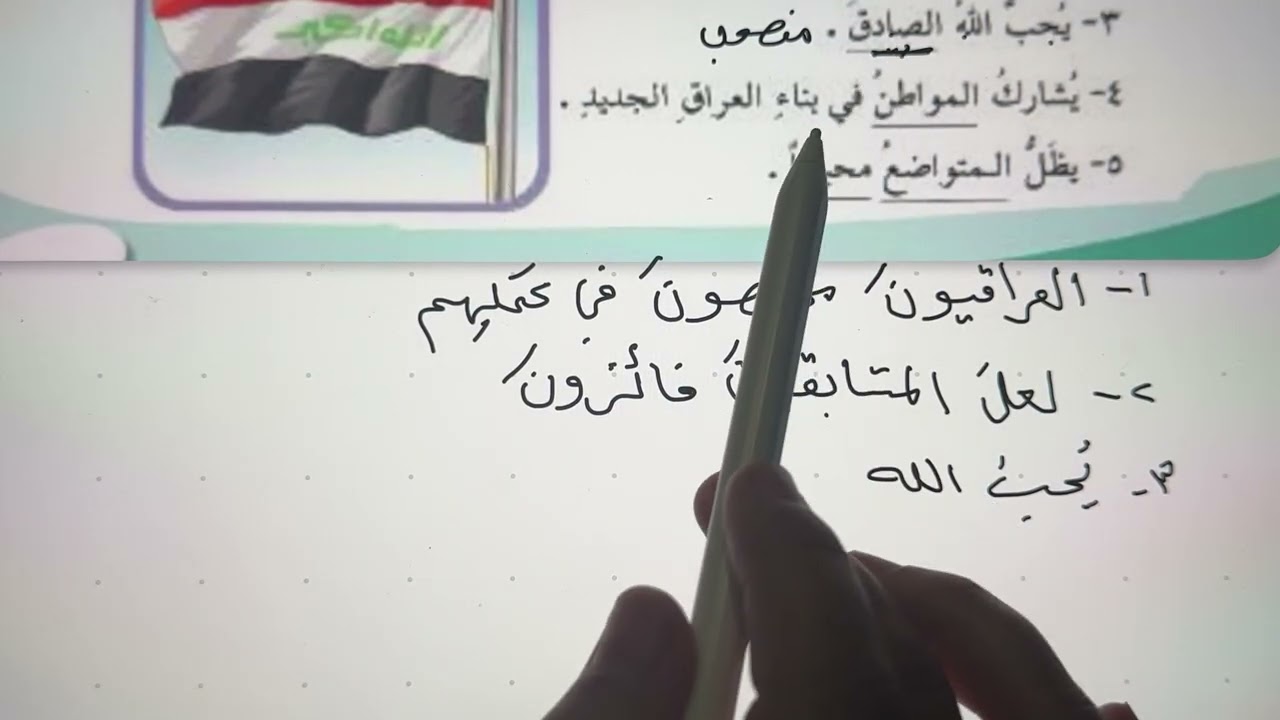 الله اكبر
٣- يُحِبُّ اللهُ الصادقَ . منصوب
٤- يُشاركُ المواطنُ في بناءِ العراقِ الجديدِ .
٥- يظَلُّ المتواضعُ .
١- العراقيونَ في عملهم
٢- لعلَ فائزونَ
٣- يُحبُ الله